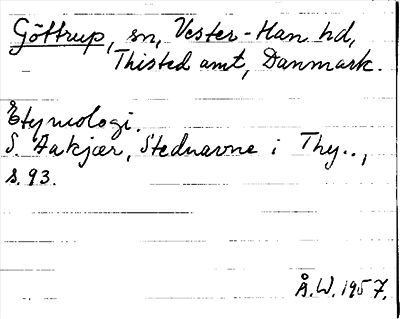 Göttrup, sn, Vester-Han hd,
Thisted amt, Danmark.
Etymologi.
S. Aakjær, Stednavne i Thy..,
s. 93.
Å.W. 1957.